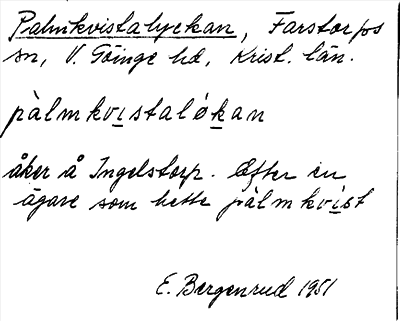 Palmkvistalyckan, Farstorps
sn, V. Göinge hd, Krist. län.
pàlmkvistaløkan
åker å Ingelstorp. Efter en
ägare som hette pàlmkvist
E. Bergenrud 1951